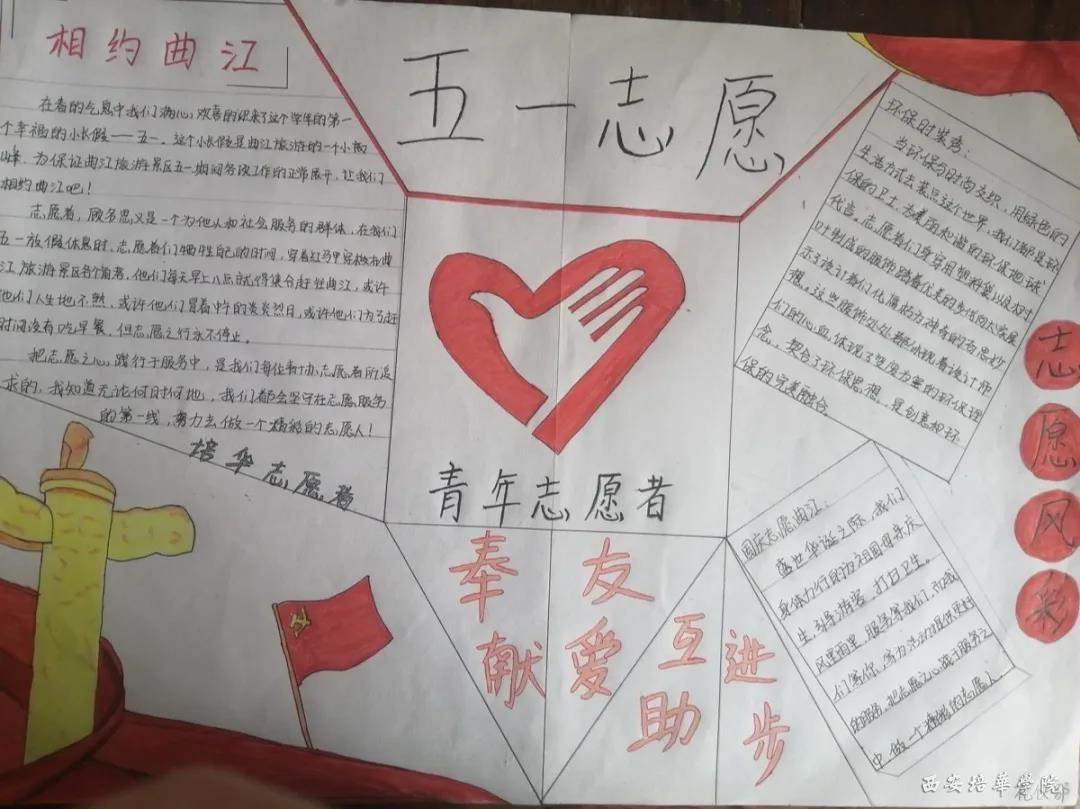 相约曲江
在春的气息中我们满心欢喜的迎来了这个学年的第一
个幸福的小长假——五一。这个小长假是曲江旅游的一个小高
峰,为保证曲江旅游景区五一期间各项工作的正常展开,让我们
相约曲江吧!
志愿者,顾名思义是一个为他人和社会服务的群体,在我们
五一放假休息时,志愿者们牺牲自己的时间,穿着红马甲穿梭在曲
江旅游景区各个角落,他们每天早上八点就得集合赶往曲江,或许
他们人生地不熟,或许他们冒着中午的炎炎烈日,或许他们为了赶
时间没有吃早餐,但志愿之行永不停止。
把志愿之心,践行于服务中,是我们每位青协志愿者所追
求的,我知道无论何时何地,我们都会坚守在志愿服务
的第一线,努力去做一个精彩的志愿人!
培华志愿
五一志愿
青年志愿者
奉献
友爱
互助
进步
环保时装秀:
当环保与时尚交织,用绿色的
生活方式去装点这个世界,我们都是环
保的卫士,为美丽和谐的环保地球
代言。志愿者们身穿用塑料袋以及材
料制成的服饰踏着优美的步伐向大家展
示了设计者们化腐朽为神奇的奇思妙
想。这些服饰处处都体现着设计师
们的心血,体现了变废为宝的环保理
念,契合了环保思想,是创意和环
保的完美融合。
国庆志愿曲江:
盛世华诞之际,我们
身体力行的为祖国母亲庆
生,引导游客,打扫卫生。
风里雨里,服务等我们,而我
们等你,客为活动提供更好
的服务,把志愿之心践于服务之
中,做一个精彩的志愿人。
志愿风彩
西安培華學院